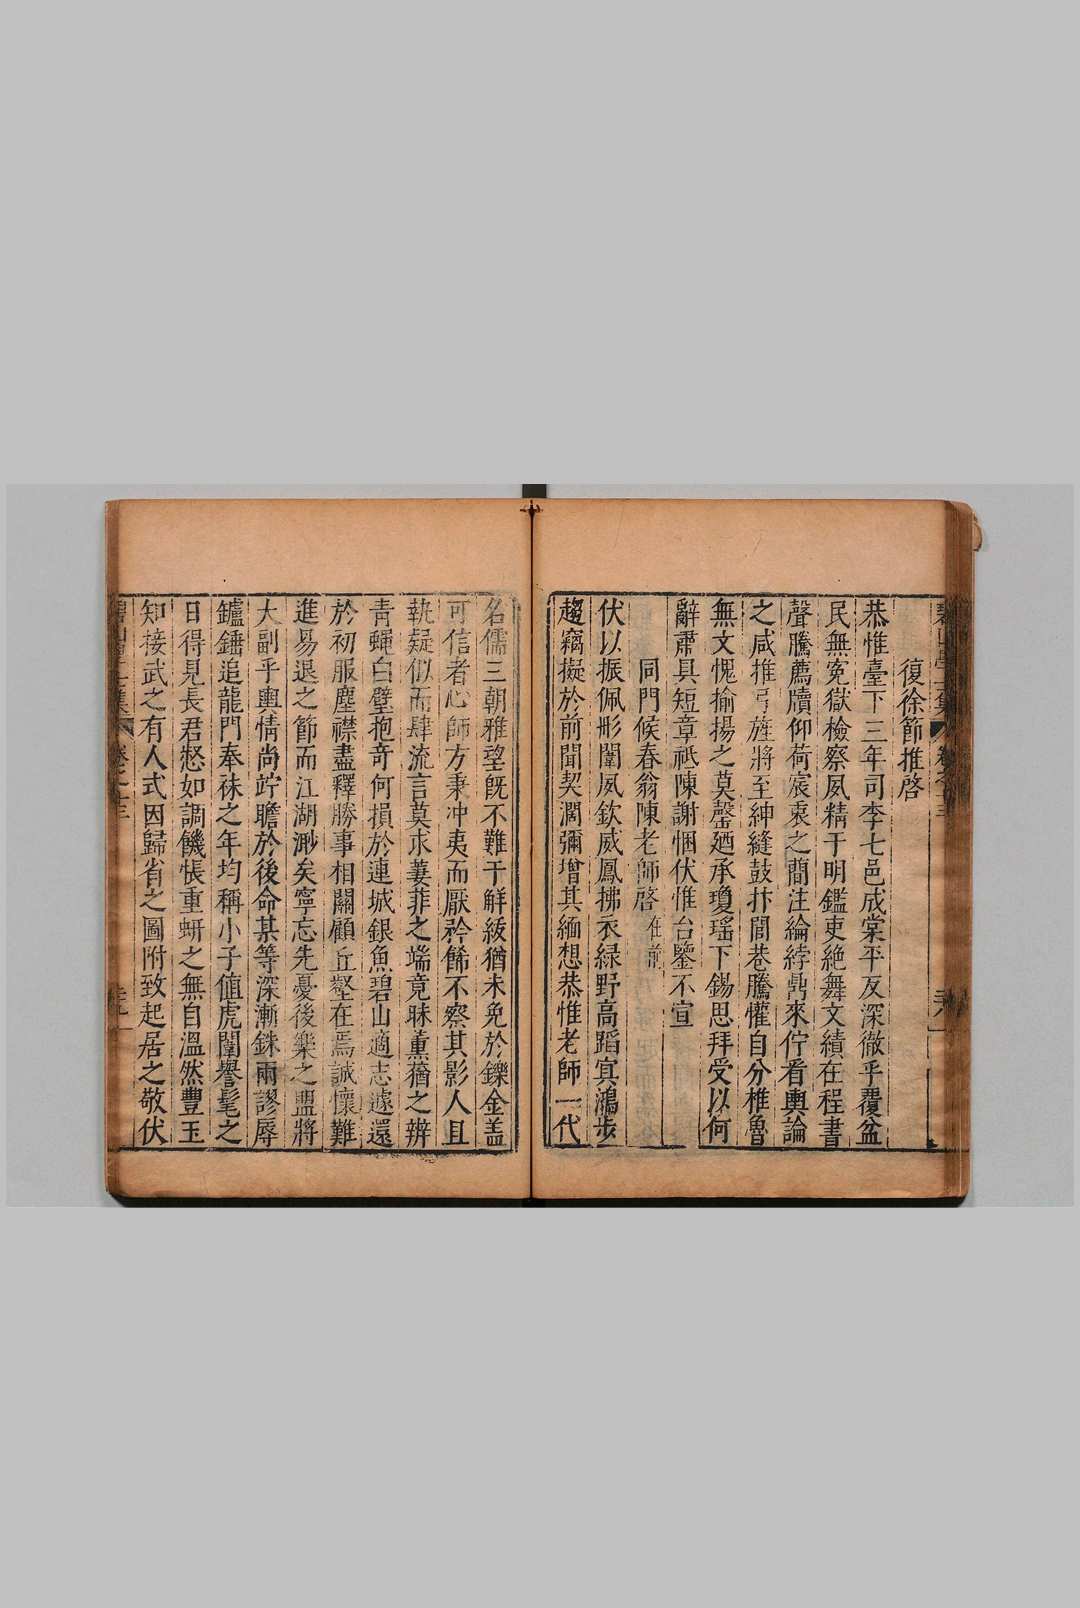 復徐節推啓
恭惟臺下三年司李七邑成棠平反深徹乎覆盆
民無寃獄檢察夙精于明鑑吏絶舞文績在程書
聲騰薦牘仰荷宸衷之簡注綸綍鼎來佇看輿論
之咸推弓旌將至紳縫鼓抃閭巷騰懽自分椎魯
無文愧揄揚之莫罄廼承瓊瑤下錫思拜受以何
辭肅具短章祗陳謝悃伏惟台鑒不宣
同門候春翁陳老師啓 在前
伏以振佩彤闈夙欽威鳳拂衣緑野高蹈冥鴻步
趨竊擬於前聞契濶彌增其緬想恭惟老師一代
名儒三朝雅望旣不難于解紱猶未免於鑠金盖
可信者心師方秉冲夷而厭矜餙不察其影人且
執疑似而肆流言莫求萋菲之端竟昧薰蕕之辨
青蠅白璧抱竒何損於連城銀魚碧山適志遽還
於初服塵襟盡釋勝事相關顧丘壑在焉誠懷難
進易退之節而江湖渺矣寧忘先憂後樂之盟將
大副乎輿情尚竚瞻於後命某等深漸銖兩謬辱
鑪錘追龍門奉袂之年均稱小子值虎闈譽髦之
日得見長君惄如調饑悵重蚈之無自溫然豐玉
知接武之有人式因歸省之圖附致起居之敬伏
碧山學士集 卷之十三